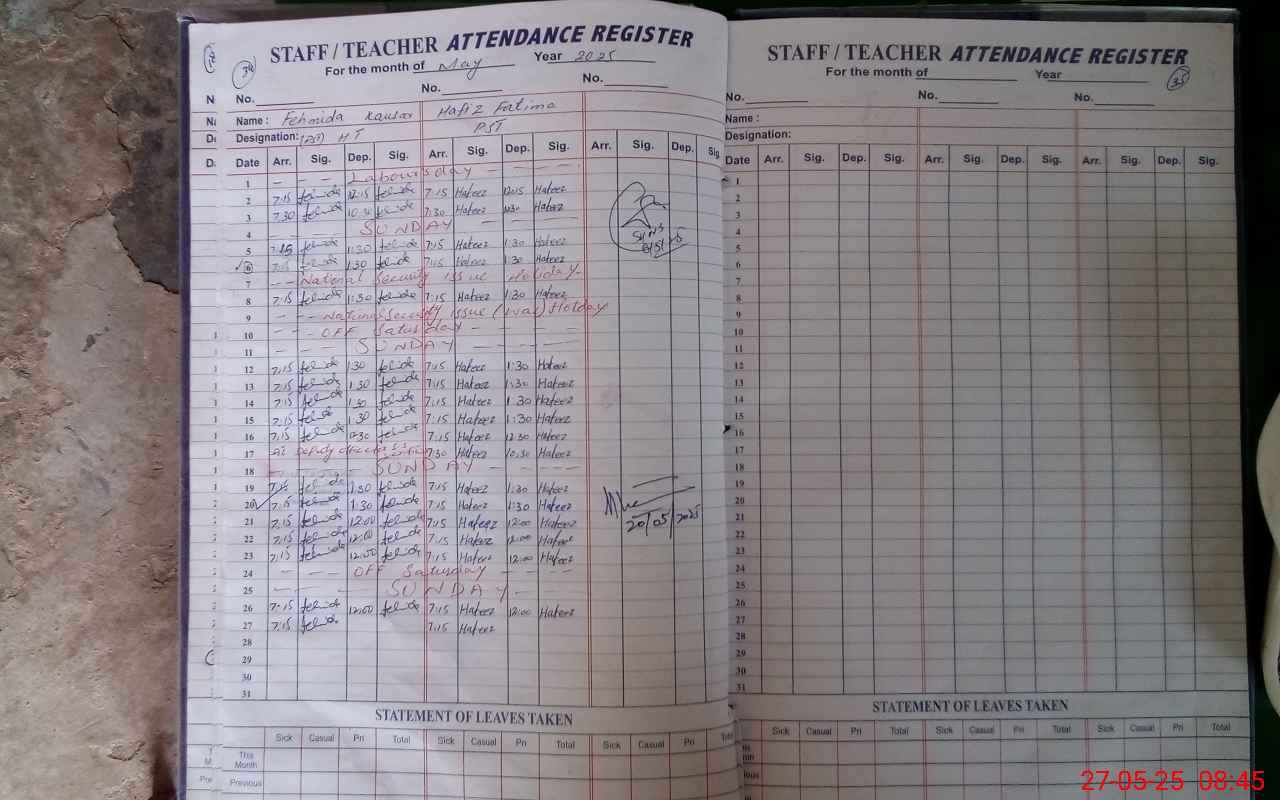 34
STAFF / TEACHER ATTENDANCE REGISTER
For the month of May Year 2025
No. No. No.
Name : Fehmida Kausar Hafiz Fatima
Designation: (PST) HT PST
Date Arr. Sig. Dep. Sig. Arr. Sig. Dep. Sig. Arr. Sig. Dep. Sig.
1 - - - Labours day - - - -
2 7:15 fehmida 12:15 fehmida 7:15 Hafeez 12:15 Hafeez
3 7:30 fehmida 10:30 fehmida 7:30 Hafeez 10:30 Hafeez
4 - - - SUNDAY - - - -
5 7:15 fehmida 1:30 fehmida 7:15 Hafeez 1:30 Hafeez
6 7:15 fehmida 1:30 fehmida 7:15 Hafeez 1:30 Hafeez
7 - - National Security issue Holiday -
8 7:15 fehmida 1:30 fehmida 7:15 Hafeez 1:30 Hafeez
9 - - National Security issue (war) Holday
10 - - OFF Saturday - - - -
11 - - - SUNDAY - - - -
12 7:15 fehmida 1:30 fehmida 7:15 Hafeez 1:30 Hafeez
13 7:15 fehmida 1:30 fehmida 7:15 Hafeez 1:30 Hafeez
14 7:15 fehmida 1:30 fehmida 7:15 Hafeez 1:30 Hafeez
15 7:15 fehmida 1:30 fehmida 7:15 Hafeez 1:30 Hafeez
16 7:15 fehmida 12:30 fehmida 7:15 Hafeez 12:30 Hafeez
17 At Deputy office 7:30 Hafeez 10:30 Hafeez
18 - - - SUNDAY - - - -
19 7:15 fehmida 1:30 fehmida 7:15 Hafeez 1:30 Hafeez
20 7:15 fehmida 1:30 fehmida 7:15 Hafeez 1:30 Hafeez
20/05/2025
21 7:15 fehmida 12:00 fehmida 7:15 Hafeez 12:00 Hafeez
22 7:15 fehmida 12:00 fehmida 7:15 Hafeez 12:00 Hafeez
23 7:15 fehmida 12:00 fehmida 7:15 Hafeez 12:00 Hafeez
24 - - - OFF Saturday - - - -
25 - - - SUNDAY -
26 7:15 fehmida 12:00 fehmida 7:15 Hafeez 12:00 Hafeez
27 7:15 fehmida 7:15 Hafeez
28
29
30
31
STATEMENT OF LEAVES TAKEN
Sick Casual Pri Total Sick Casual Pri Total Sick Casual Pri
This Month
Previous
STAFF / TEACHER ATTENDANCE REGISTER
For the month of Year
35
No. No. No.
Name :
Designation:
Date Arr. Sig. Dep. Sig. Arr. Sig. Dep. Sig. Arr. Sig. Dep. Sig.
1
2
3
4
5
6
7
8
9
10
11
12
13
14
15
16
17
18
19
20
21
22
23
24
25
26
27
28
29
30
31
STATEMENT OF LEAVES TAKEN
Sick Casual Pri Total Sick Casual Pri Total Sick Casual Pri Total
27-05-25 08:45